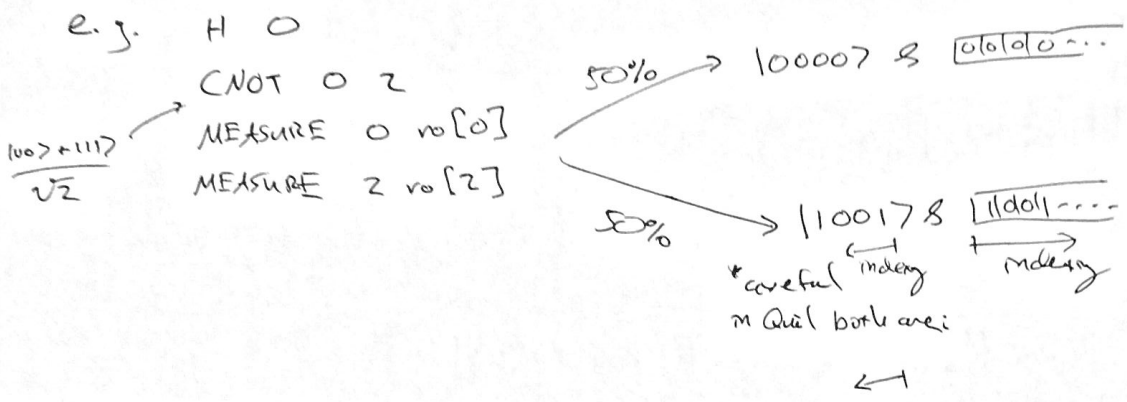 e.g. H 0
CNOT 0 2
MEASURE 0 ro[0]
MEASURE 2 ro[2]
|00> + |11>
√2
50%
|0000> & |0|0|0|0...
50%
|1001> & |1|0|1|....
indexing
indexing
*careful
in Quil both are: